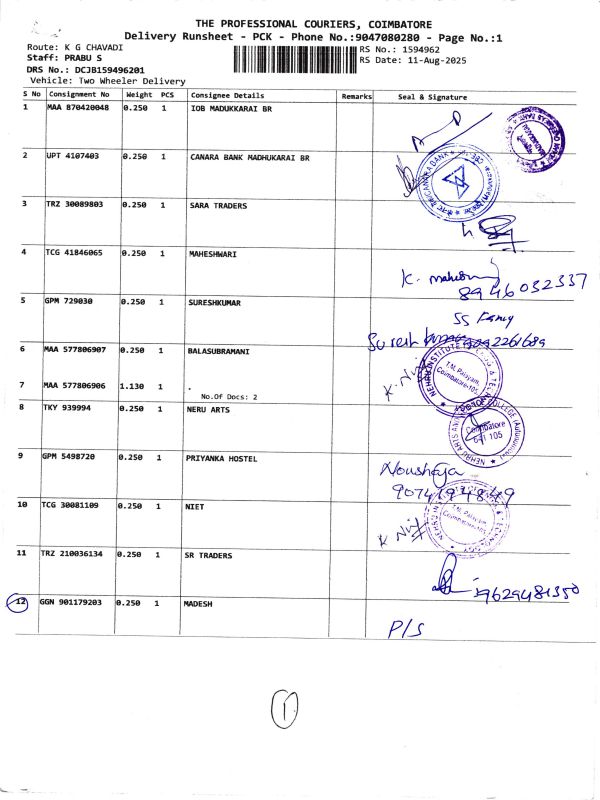 THE PROFESSIONAL COURIERS, COIMBATORE
Delivery Runsheet - PCK - Phone No.:9047080280 - Page No.:1
Route: K G CHAVADI
RS No.: 1594962
Staff: PRABU S
RS Date: 11-Aug-2025
DRS No.: DCJB159496201
Vehicle: Two Wheeler Delivery
S No Consignment No Weight PCS Consignee Details Remarks Seal & Signature
1 MAA 870420048 0.250 1 IOB MADUKKARAI BR
2 UPT 4107403 0.250 1 CANARA BANK MADHUKARAI BR
3 TRZ 30089803 0.250 1 SARA TRADERS
4 TCG 41846065 0.250 1 MAHESHWARI
8946032337
5 GPM 729030 0.250 1 SURESHKUMAR
SS Fancy
Suresh
6 MAA 577806907 0.250 1 BALASUBRAMANI
T.M. Palayam,
Coimbatore-105
7 MAA 577806906 1.130 1 .
No.Of Docs: 2
8 TKY 939994 0.250 1 NERU ARTS
Coimbatore
641 105
9 GPM 5498720 0.250 1 PRIYANKA HOSTEL
9074194849
10 TCG 30081109 0.250 1 NIET
T.M. Palayam,
Coimbatore-105
11 TRZ 210036134 0.250 1 SR TRADERS
9629481350
12 GGN 901179203 0.250 1 MADESH
P/S
1